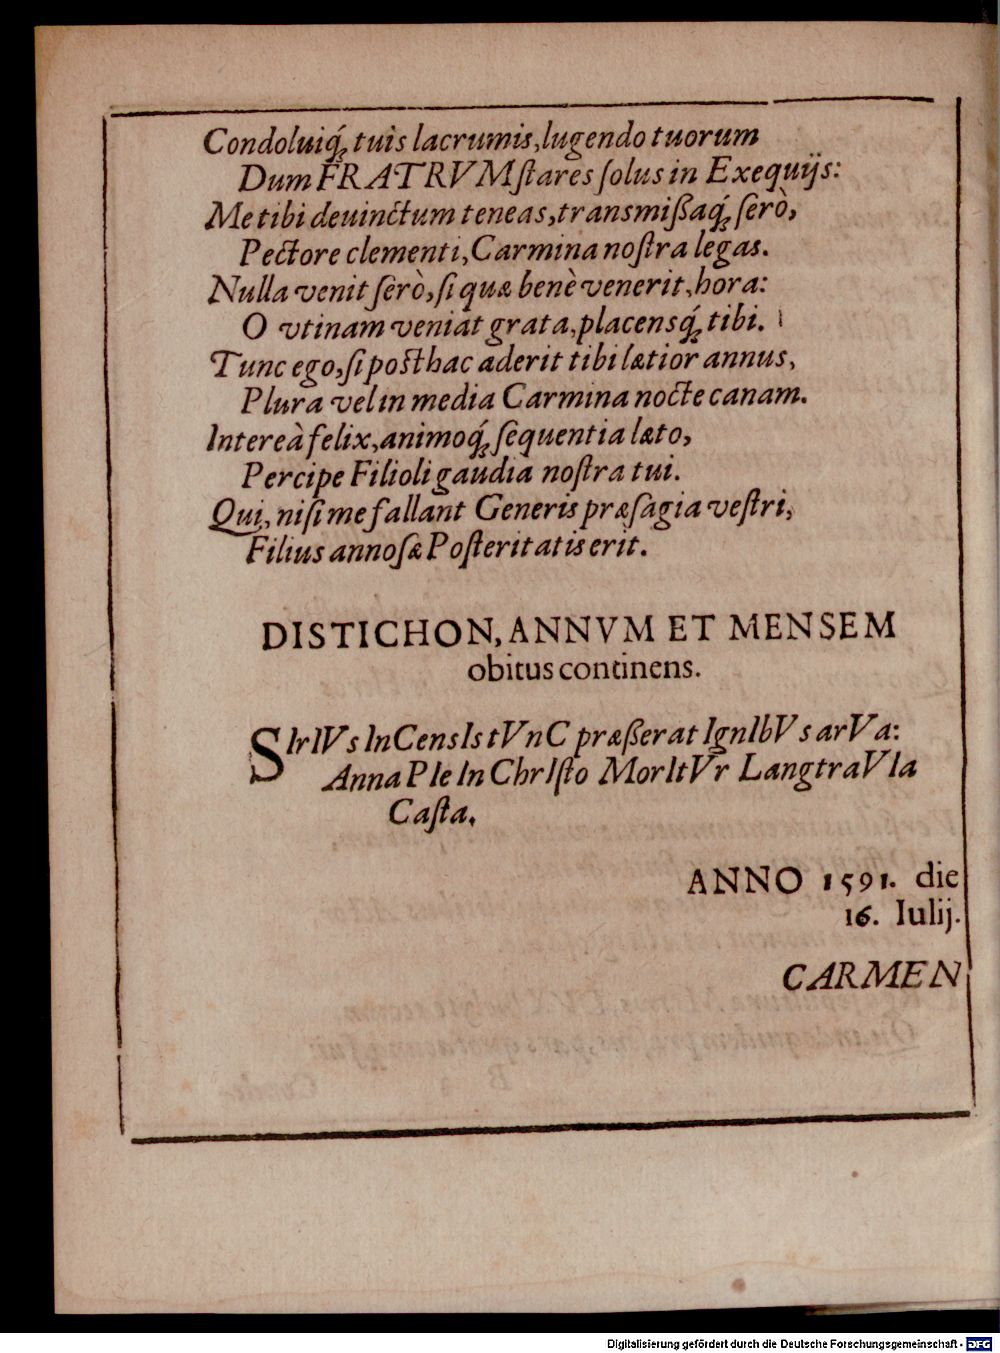 Condoluiq́; tuis lacrumis, lugendo tuorum
Dum FRATRVM ſtares ſolus in Exequijs:
Me tibi deuinctum teneas, transmißaq́; ſerò,
Pectore clementi, Carmina noſtra legas.
Nulla venit ſerò, ſi quæ benè venerit, hora:
O vtinam veniat grata, placensq́; tibi.
Tunc ego, ſi posthac aderit tibi lætior annus,
Plura vel in media Carmina nocte canam.
Intereà felix, animoq́; ſequentia læto,
Percipe Filioli gaudia noſtra tui.
Qui, niſi me fallant Generis præſagia veſtri,
Filius annoſæ Poſteritatis erit.
DISTICHON, ANNVM ET MENSEM
obitus continens.
SIrIVs InCensIs tVnC præßerat IgnIbVs arVa:
Anna PIe In ChrIſto MorItVr LangtraVIa
Caſta.
ANNO 1591. die
16. Iulij.
CARMEN
Digitalisierung gefördert durch die Deutsche Forschungsgemeinschaft - DFG